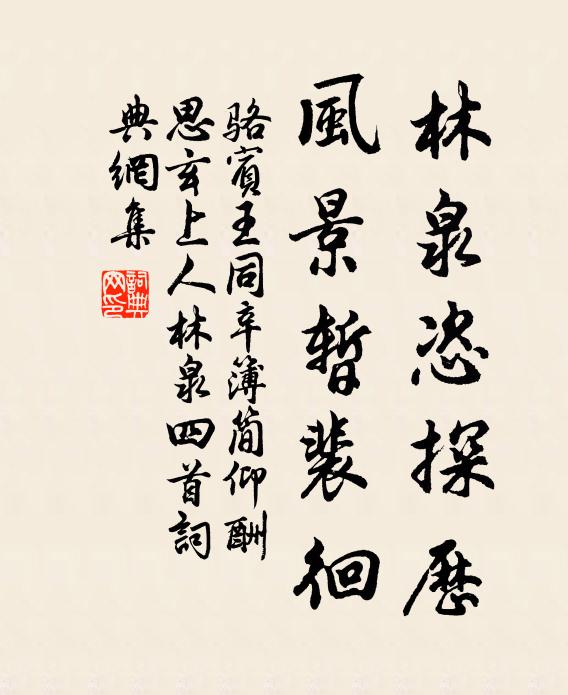 林泉恣探歷
風景暫裴徊
駱賓王同辛簿簡仰酬
思玄上人林泉四首詞
典網集
詞典網印